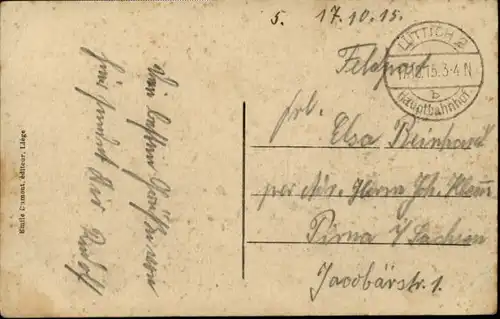 5. 17.10.15.
Feldpost
LÜTTICH 2
17.10.15.3-4 N
b
Hauptbahnhof.
Frl.
Elsa Reinhard
per Adr. Herrn Joh. Klemm
Pirna i/ Sachsen
Jacobärstr. 1.
Den besten Gruß
sendet Dir Rudolf
Emile Dumont, éditeur, Liège